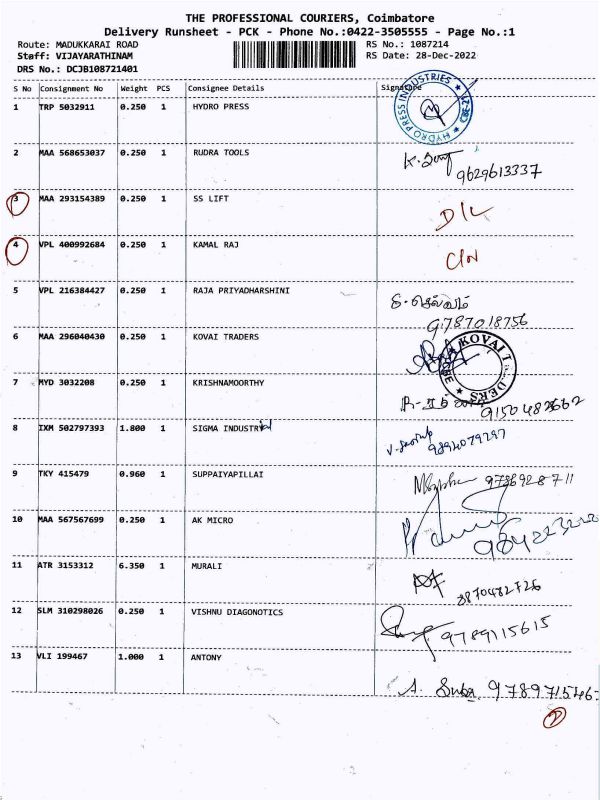 THE PROFESSIONAL COURIERS, Coimbatore
Delivery Runsheet - PCK - Phone No.:0422-3505555 - Page No.:1
Route: MADUKKARAI ROAD RS No.: 1087214
Staff: VIJAYARATHINAM RS Date: 28-Dec-2022
DRS No.: DCJB108721401
S No Consignment No Weight PCS Consignee Details Signature
1 TRP 5032911 0.250 1 HYDRO PRESS HYDRO PRESS INDUSTRIES
2 MAA 568653037 0.250 1 RUDRA TOOLS
9629613337
3 MAA 293154389 0.250 1 SS LIFT D/L
4 VPL 400992684 0.250 1 KAMAL RAJ C/N
5 VPL 216384427 0.250 1 RAJA PRIYADHARSHINI
9787018756
6 MAA 296040430 0.250 1 KOVAI TRADERS KOVAI TRADERS
7 MYD 3032208 0.250 1 KRISHNAMOORTHY
8 IXM 502797393 1.800 1 SIGMA INDUSTRY
9894079297
9 TKY 415479 0.960 1 SUPPAIYAPILLAI
10 MAA 567567699 0.250 1 AK MICRO
11 ATR 3153312 6.350 1 MURALI
8870482726
12 SLM 310298026 0.250 1 VISHNU DIAGONOTICS 9789115615
13 VLI 199467 1.000 1 ANTONY